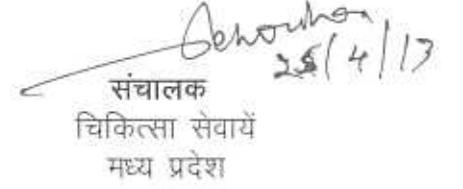 25/4/13
संचालक
चिकित्सा सेवायें
मध्य प्रदेश